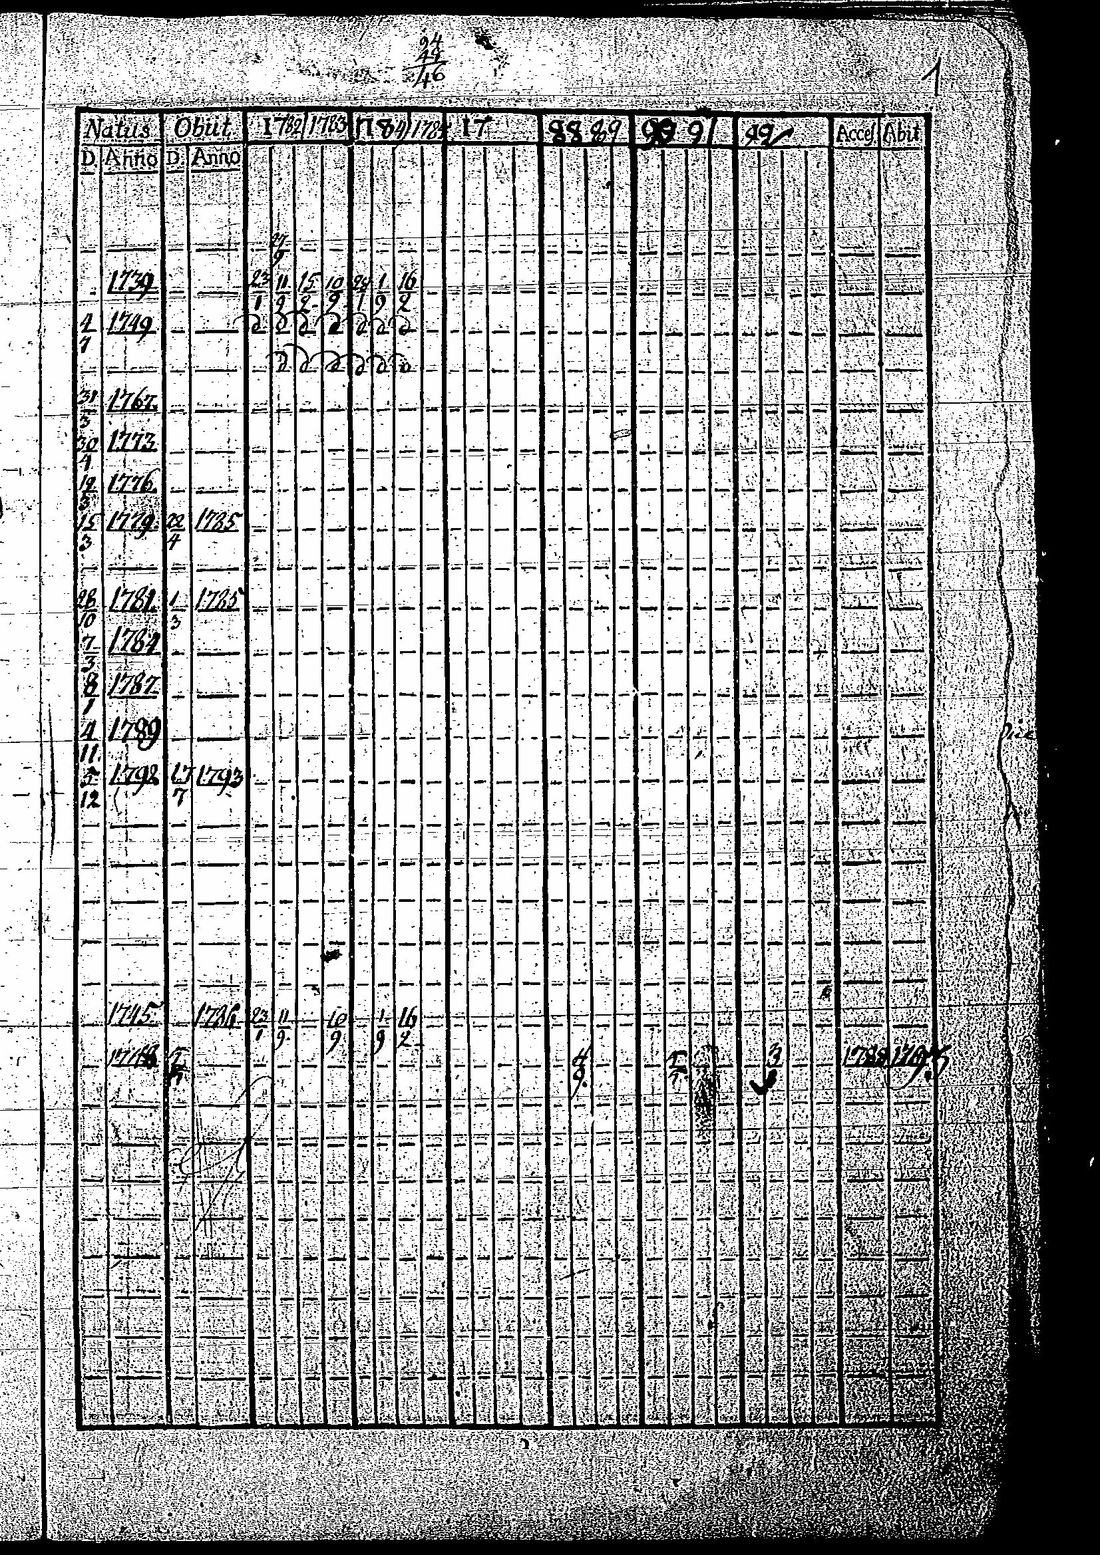 94
48
46
1
Natus Obiit 1782 1783 1784 178 17 88 89 90 91 92 Access Abit
D. Anno D. Anno
27
9
1739 23 11 15 10 24 1 16
1 9 2 9 1 9 2
4 1749 d d d d d d d
7
d d d d d d
31 1767
3
30 1773
4
19 1776
3
15 1779 22 1785
3 4
28 1781 1 1785
10 3
7 1784
3
8 1787
1
4 1789
11
5 1792 17 1793
12 7
1745 1786 23 11 10 1 16
1 9 9 9 2
4 5 3 1788
9 7